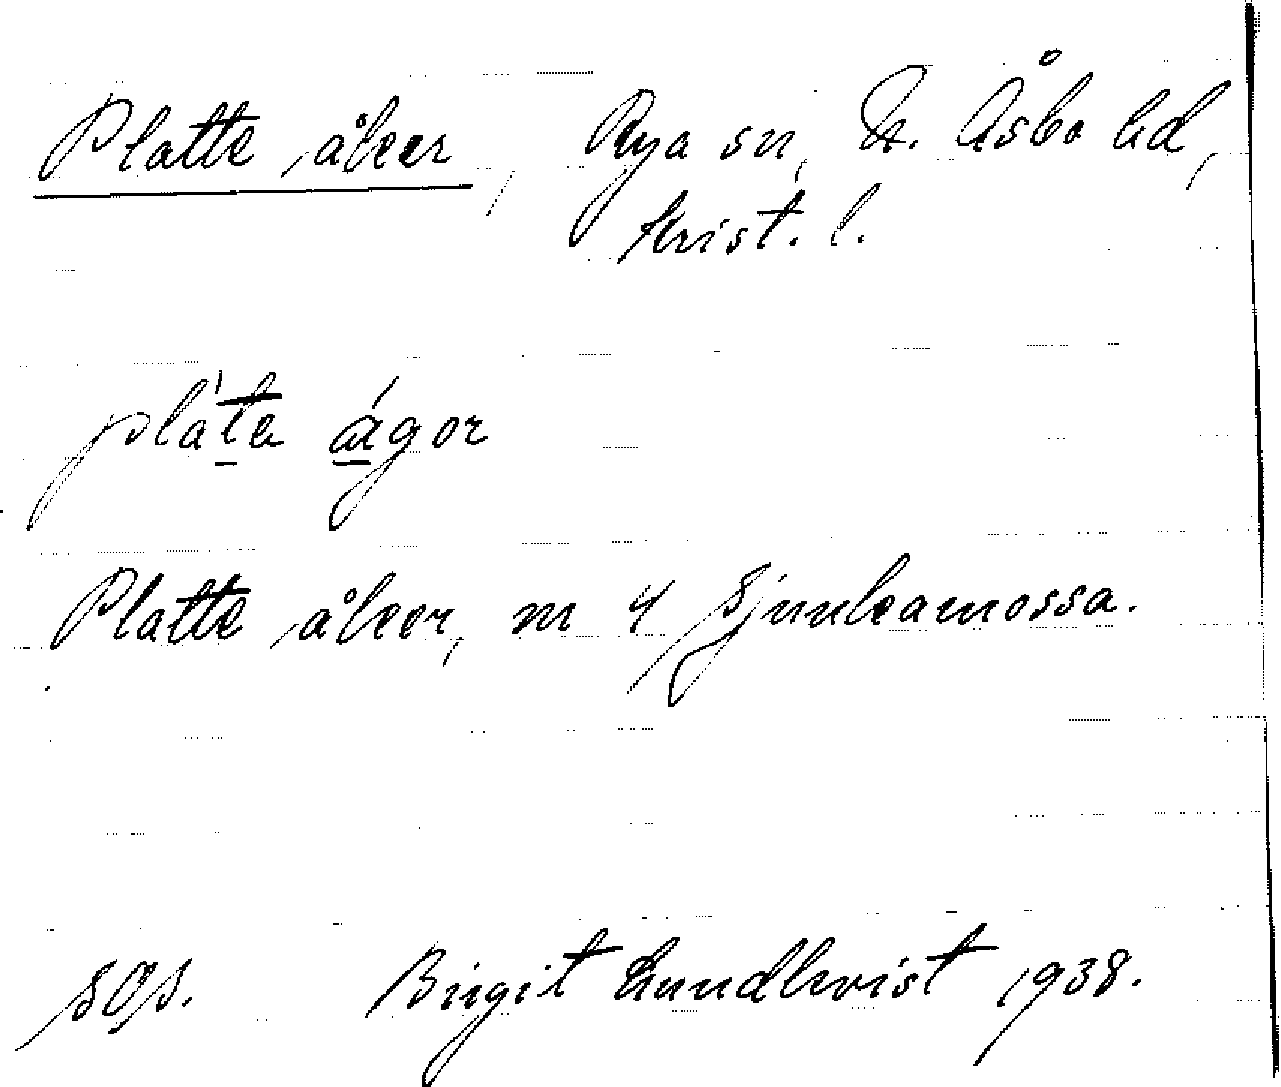 Platte åker, Rya sn, N. Åsbo hd,
Krist. l.
pláta ágor
Platte åker, m 4 Sjunkamossa.
SOS. Birgit Lundkvist 1938.